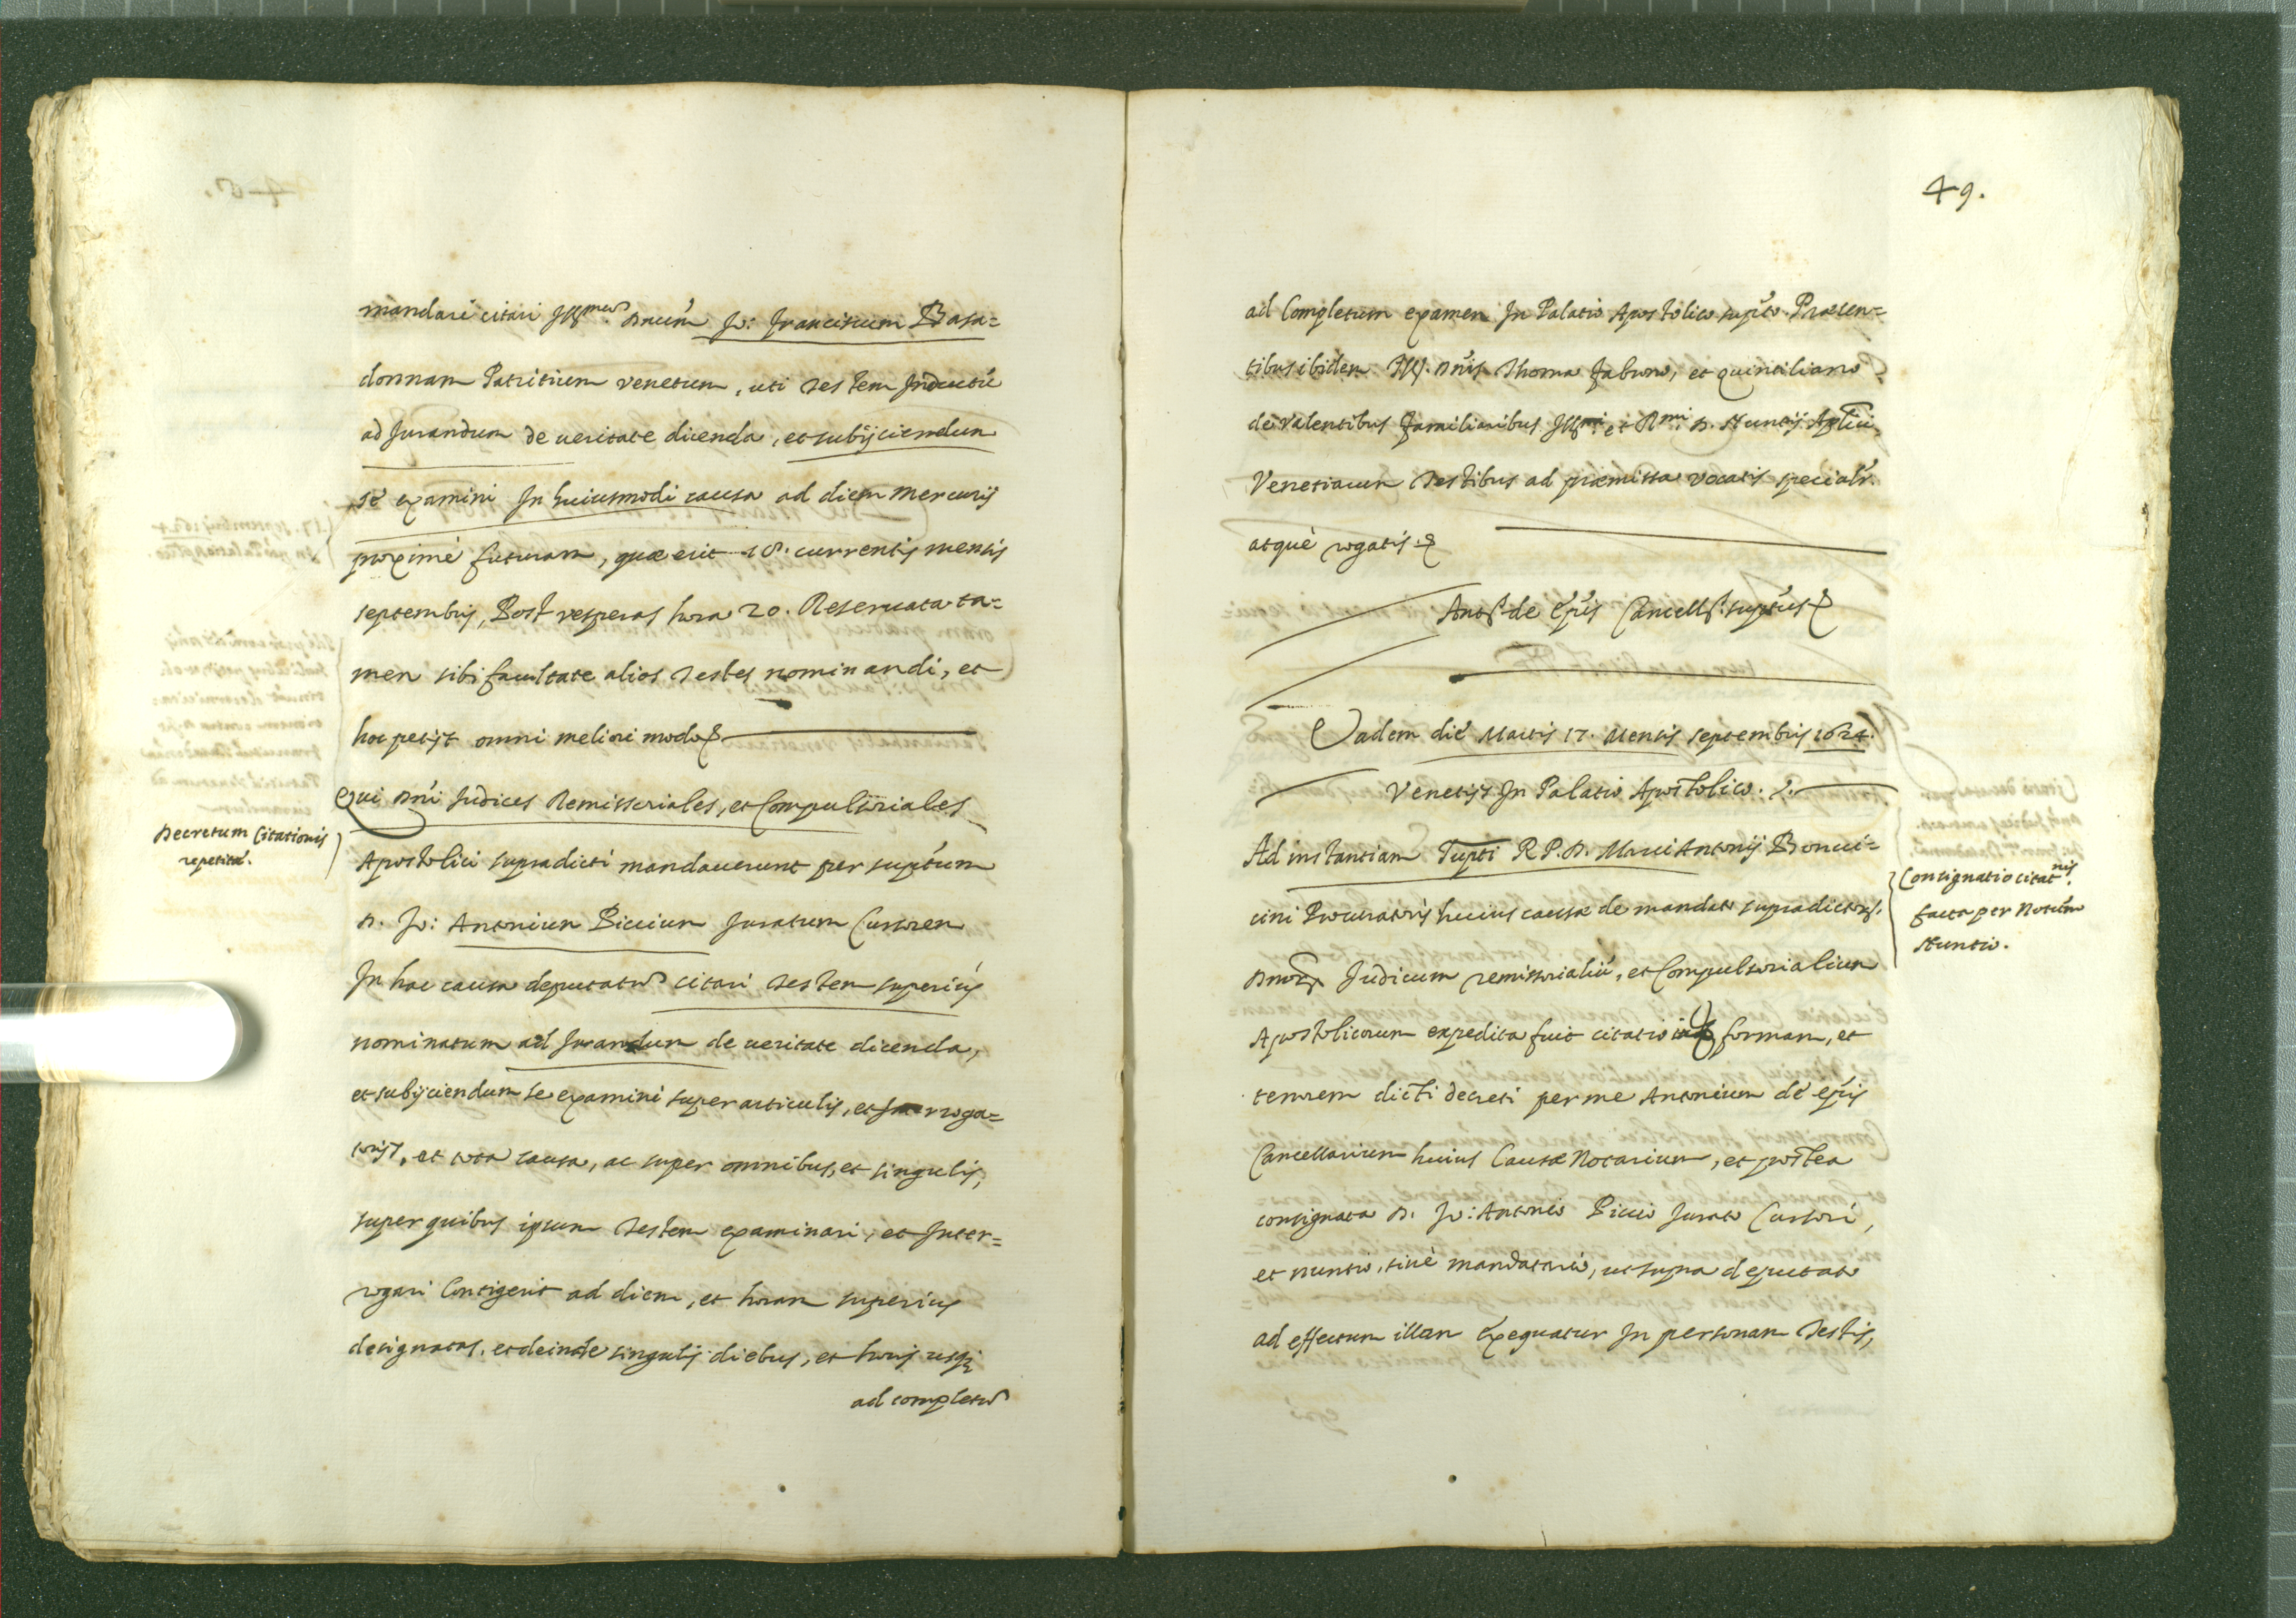 mandari citari Illmum Dnum Jo: Franciscum Basa=
donnam Patritium venetum, uti Testem Inductu
ad Jurandum de ueritate dicenda, et subijciendum
se examini In huiusmodi causa ad diem Mercurij
proximè futuram, quæ erit 18. currentis mensis
septembris, Post vesperas hora 20. Reseruata ta=
men sibi facultate alios Testes nominandi, et
hoc petijt omni meliori modo
Qui Dni Judices Remissoriales, et Compulsoriales
Decretum Citationis
repetitæ.
Apostolici supradicti mandauerunt per suptum
D. Jo: Antonium Piccium Juratum Cursorem
In hac causa deputatu citari Testem superius
nominatum ad Jurandum de ueritate dicenda,
et subijciendum se examini super articulis, et Interroga=
torijs, et tota causa, ac super omnibus, et singulis,
super quibus ipsum Testem examinari, et Inter=
rogari Contigerit ad diem, et horam superius
designatas, et deinde singulis diebus, et horis usq;
ad completu
49.
ad Completum examen In Palatio Apostolico supto. Præsen=
tibus ibidem Ill. Dnis Thoma Fabrono, et Quintiliano
de Valentibus Familiaribus Illmi et Rmi D. Nuntij Aplici
Venetiarum Testibus ad præmissa vocatis specialr.
atquè rogatis.
Ants. de Epis Cancells. suptus
Eadem diè Martis 17. Mensis septembris 1624.
Venetijs In Palatio Apostolico.
Ad instantiam supti R P. D. Marci Antonij Bonui=
cini Procuratoris huius causæ de mandato supradictor.
Consignatio citatnis.
facta per Notum
Nuntio.
Dnor Judicum remissorialiu, et Compulsorialium
Apostolicorum expedita fuit citatio formam, et
tenorem dicti decreti per me Antonium de epis
Cancellarium huius Causæ Notarium, et postea
consignata D. Jo: Antonio Piccio Jurato Cursori,
et nuntio, siuè mandatario, ut supra deputato
ad effectum illam exequatur In personam Testis,